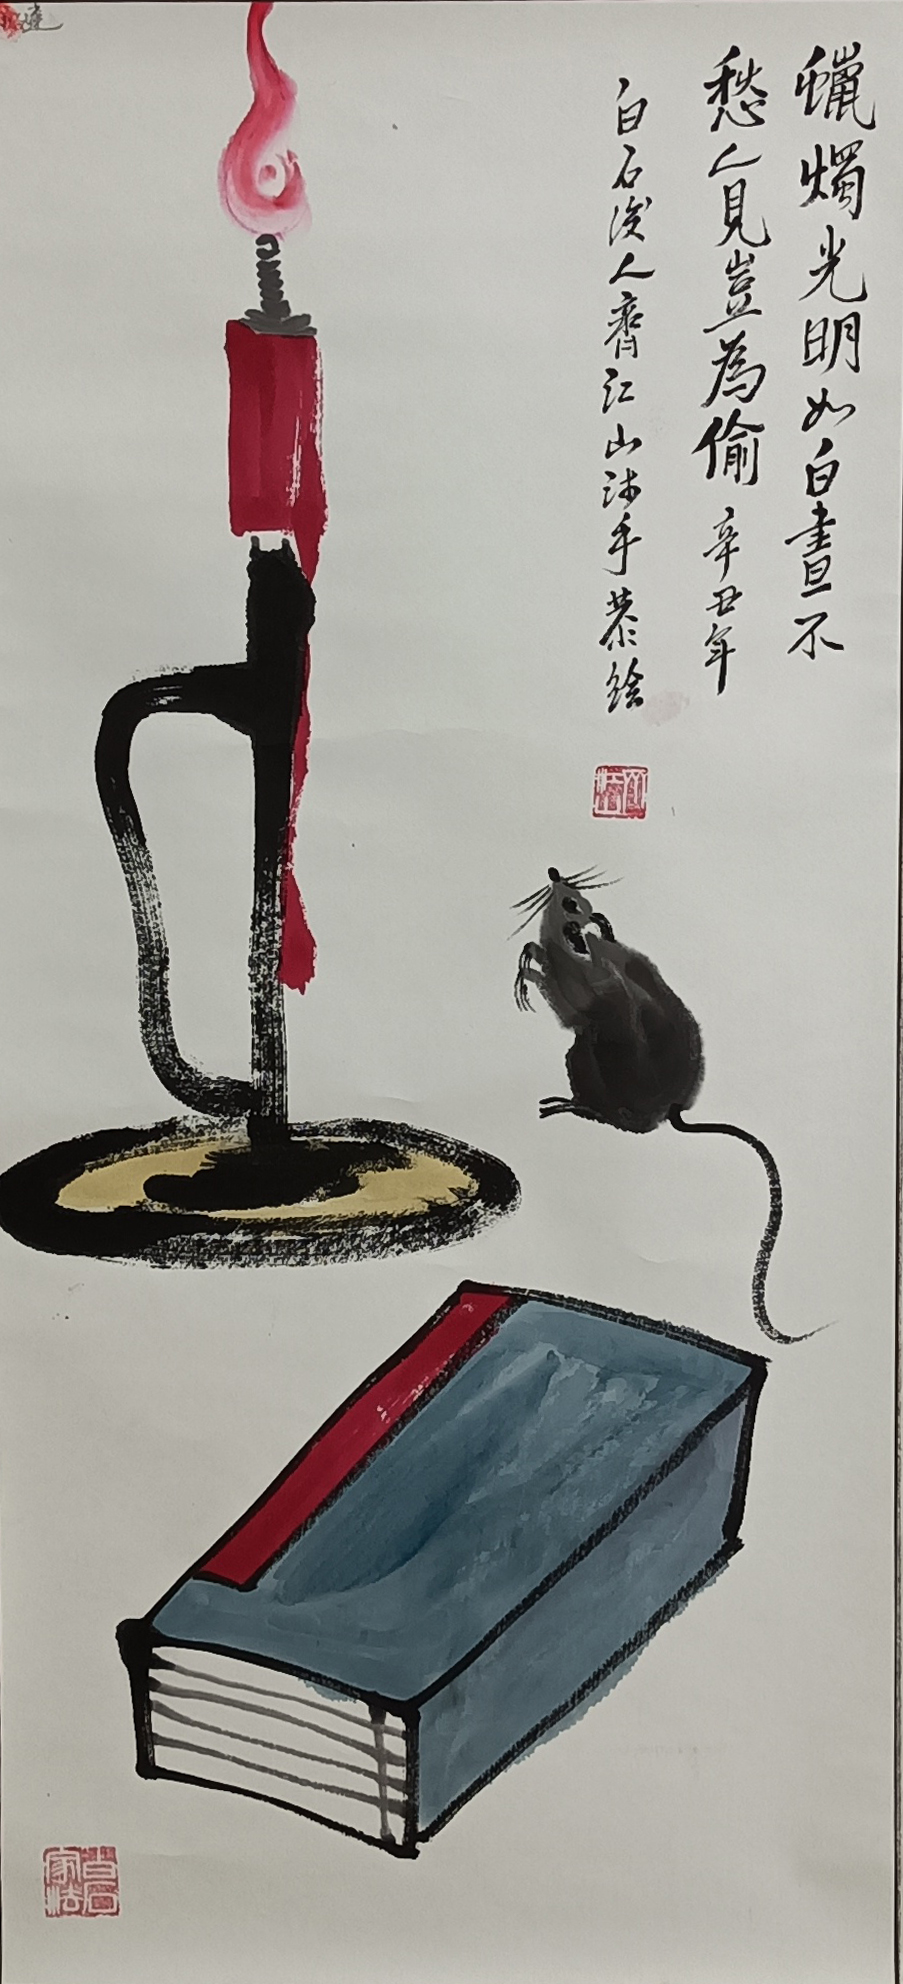 蠟燭光明如白晝不
愁人見豈為偷 辛丑年
白石後人齊江山沐手恭绘
白石家法